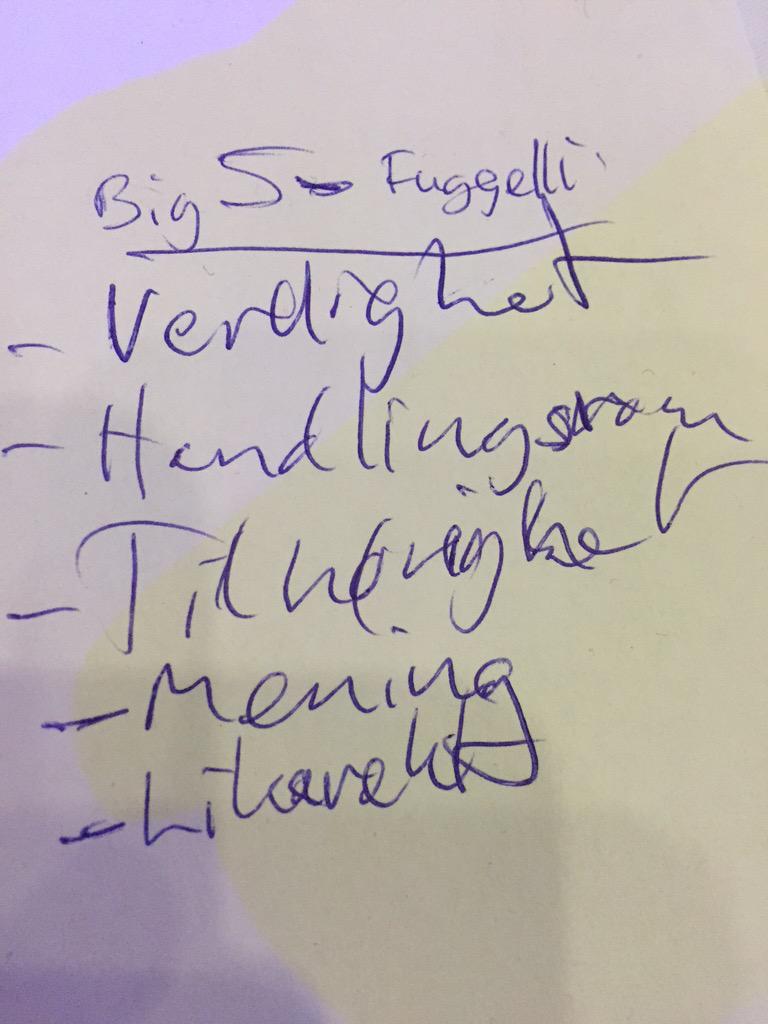 Big 5 - Fuggelli
- Verdighet
- Handlingsrom
- Tilhørighet
- Mening